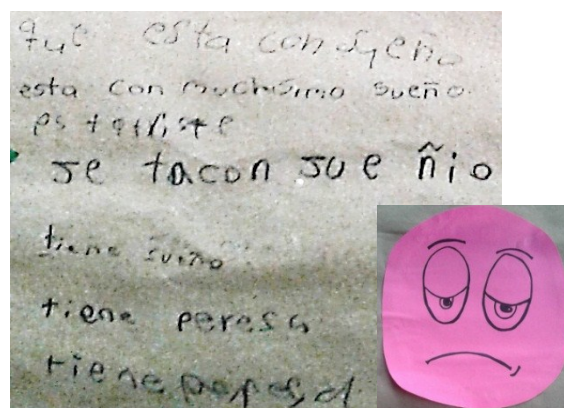 que esta con sueño
esta con muchísimo sueño
es tarliste
se tacon sue ñio
tiene sueño
tiene peresa
tiene peresa